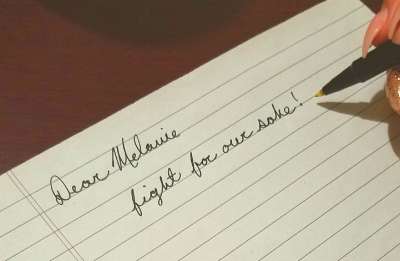 Dear Melanie
fight for our sake!